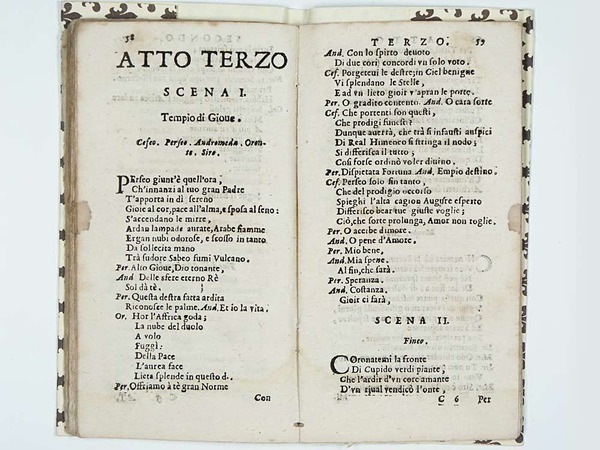 58
ATTO TERZO
SCENA I.
Tempio di Gioue.
Cefeo. Perseo. Andromeda. Oron-
te. Siro.
PErseo giunt'è quell'ora,
Ch'innanzi al tuo gran Padre
T'apporta in dì sereno
Gioie al cor, pace all'alma, e sposa al seno:
S'accendano le mirre,
Ardan lampade aurate, Arabe fiamme
Ergan nubi odorose, e scosso in tanto
Da sollecita mano
Trà sudore Sabeo fumi Vulcano.
Per. Alto Gioue, Dio tonante,
And. Delle sfere eterno Rè
Sol dà tè.
Per. Questa destra fatta ardita
Riconosce le palme. And. Et io la vita.
Or. Hor l'Affrica goda;
La nube del duolo
A volo
Fuggì:
Della Pace
L'aurea face
Lieta splende in questo dì.
Per. Offriamo à tè gran Norme
Con
TERZO. 59
And. Con lo spirto deuoto
Di due cori concordi vn solo voto.
Cef. Porgeteui le destre; in Ciel benigne
Vi splendano le Stelle,
E ad vn lieto gioir v'apran le porte.
Per. O gradito contento. And. O cara sorte
Cef. Che portenti son questi,
Che prodigi funesti?
Dunque auerrà, che trà sì infausti auspici
Di Real Himeneo si stringa il nodo;
Si differisca il tutto;
Così forse ordinò voler diuino.
Per. Dispietata Fortuna. And. Empio destino.
Cef. Perseo solo fin tanto,
Che del prodigio occorso
Spieghi l'alta cagion Auguste esperto
Differisco bear tue giuste voglie;
Ciò, che sorte prolunga, Amor non toglie.
Per. O acerbe dimore.
And. O pene d'Amore.
Per. Mio bene,
And. Mia spene.
Al fin, che sarà.
Per. Speranza.
And. Costanza.
Gioir ci farà,
SCENA II.
Fineo.
COronatemi la fronte
Di Cupido verdi piante;
Che l'ardir d'vn core amante
D'vn riual vendicò l'onte,
C 6 Per